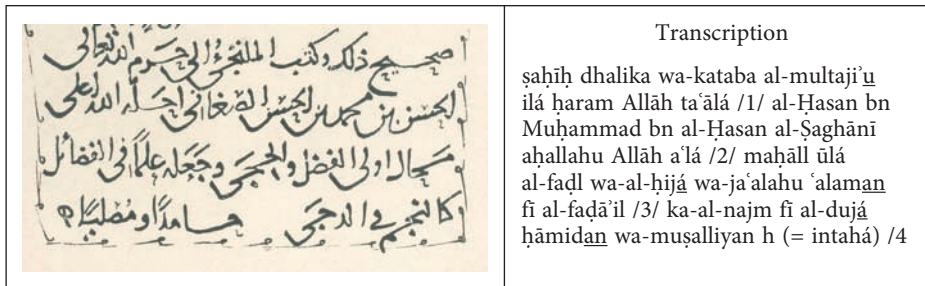 صحيح ذلك وكتب الملتجئُ الى حرم الله تعالى
الحسن بن محمد بن الحسن الصغانى احله الله اعلى
محال اولى الفضل والحجى وجعله علماً فى الفضائل
كالنجم فى الدجى حامداً ومصلياً ه
Transcription
ṣaḥīḥ dhalika wa-kataba al-multajiʾu
ilá ḥaram Allāh taʿālá /1/ al-Ḥasan bn
Muḥammad bn al-Ḥasan al-Ṣaghānī
aḥallahu Allāh aʿlá /2/ maḥāll ūlá
al-faḍl wa-al-ḥijá wa-jaʿalahu ʿalaman
fī al-faḍāʾil /3/ ka-al-najm fī al-dujá
ḥāmidan wa-muṣalliyan h (= intahá) /4